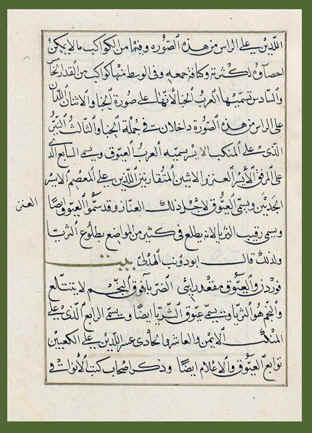 اللذين على الراس من هذه الصورة وفيما من الكواكب ما لا يمكن
احصاؤه لكثرتها وكثافة جمعه وفي الوسط منها كواكب من القدر
والسادس تسميها العرب الخباء لانها على صورة الخباء والاثنان اللذان
على الراس من هذه الصورة داخلان في جملة الخباء والثالث النير
الذي على المنكب الايسر تسميه العرب العيوق ويسمى السابع الذي
على المرفق الايسر العنز والاثنين المتقاربين اللذين على المعصم الايسر
الجديين ويسمى العيوق لاجل ذلك العناز وقد سموا العيوق ايضا
ويسمى رقيب الثريا لانه يطلع في كثير من المواضع بطلوع الثريا
العنز
ولذلك قال ابو ذؤيب الهذلي بيت
فوردن والعيوق مقعد رابئ الضرباء فوق النجم لا يتتلع
والنجم هو الثريا ويسمى عيوق الثريا ايضا ويسمى الرابع الذي على
المنكب الايمن والعاشر والحادي عشر اللذين على الكعبين
توابع العيوق والاعلام ايضا وذكر اصحاب كتب الانواء في